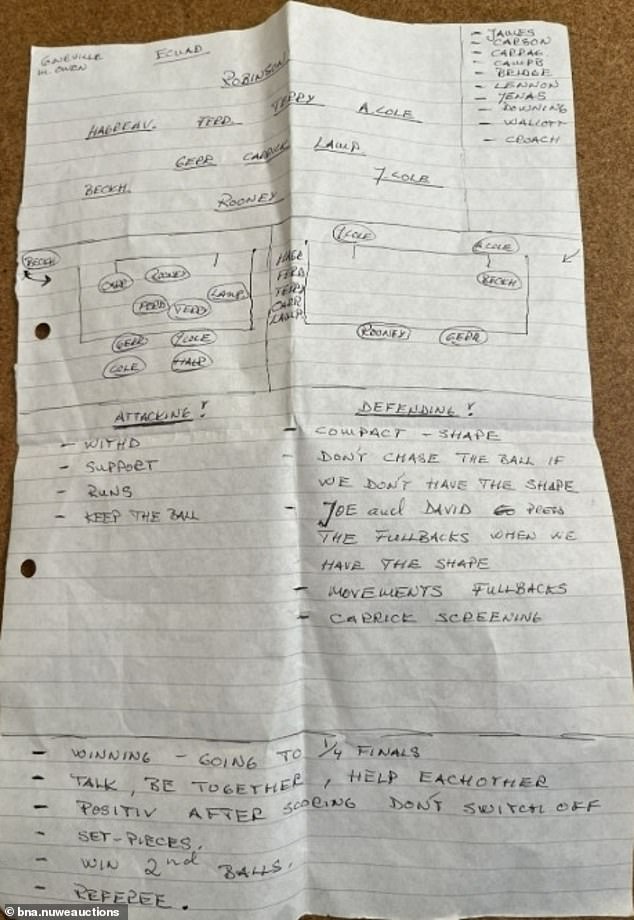 G NEVILLE
M. OWEN
ECUAD
ROBINSON
HAGREAV. FERD. TERRY A. COLE
GERR CARRICK LAMP
BECKH. J. COLE
ROONEY
- JAMES
- CARSON
- CARRAG
- CAMPB
- BRIDGE
- LENNON
- JENAS
- DOWNING
- WALCOTT
- CROACH
BECKH
CARR ROONEY
FERD TERRY LAMP
GERR J COLE
COLE HARG
HAGR
FERD
TERRY
CARR
LAMP
J COLE A COLE
BECKH
ROONEY GERR
ATTACKING!
- WITHD
- SUPPORT
- RUNS
- KEEP THE BALL
DEFENDING!
- COMPACT - SHAPE
- DON'T CHASE THE BALL IF
WE DON'T HAVE THE SHAPE
- JOE and DAVID PRESS
THE FULLBACKS WHEN WE
HAVE THE SHAPE
- MOVEMENTS FULLBACKS
- CARRICK SCREENING
- WINNING - GOING TO 1/4 FINALS
- TALK, BE TOGETHER, HELP EACHOTHER
- POSITIV AFTER SCORING DON'T SWITCH OFF
- SET-PIECES.
- WIN 2nd BALLS.
- REFEREE.
© bna.nuweauctions